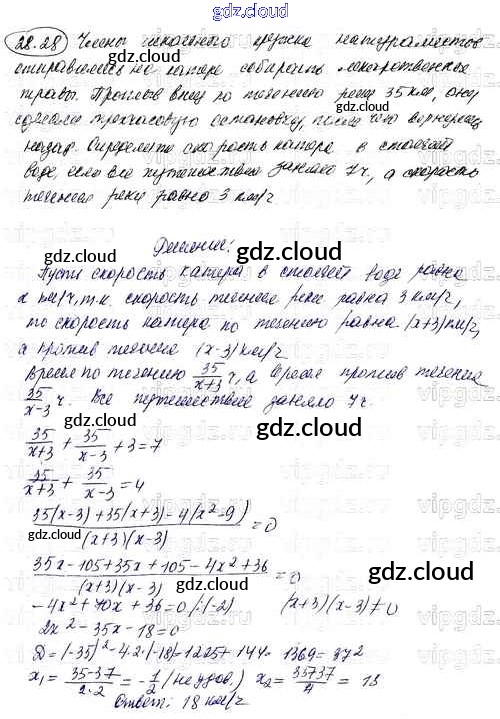 gdz.cloud
28.28 Члены школьного кружка натуралистов
gdz.cloud gdz.cloud
отправились на катере собирать лекарственные
травы. Проплыв вниз по течению реки 35 км, они
сделали трехчасовую остановку, после чего вернулись
назад. Определите скорость катера в стоячей
воде, если все путешествие заняло 7 ч, а скорость
течения реки равна 3 км/ч
Решение:
gdz.cloud
Пусть скорость катера в стоячей воде равна
x км/ч, т.к. скорость течения реки равна 3 км/ч,
gdz.cloud
то скорость катера по течению равна (x+3) км/ч,
а против течения (x-3) км/ч
Время по течению 35/(x+3) ч, а время против течения
35/(x-3) ч. Все путешествие заняло 7 ч.
gdz.cloud
35/(x+3) + 35/(x-3) + 3 = 7
gdz.cloud
35/(x+3) + 35/(x-3) = 4
gdz.cloud
(35(x-3)+35(x+3)-4(x²-9))/((x+3)(x-3)) = 0
(35x-105+35x+105-4x²+36)/((x+3)(x-3)) = 0
gdz.cloud
-4x²+70x+36=0 /:(-2) (x+3)(x-3)≠0
2x²-35x-18=0
gdz.cloud
D=(-35)²-4·2·(-18)=1225+144=1369=37²
x₁ = (35-37)/(2·2) = -1/2 (не удов.) x₂ = (35+37)/4 = 18
Ответ: 18 км/ч
gdz.cloud